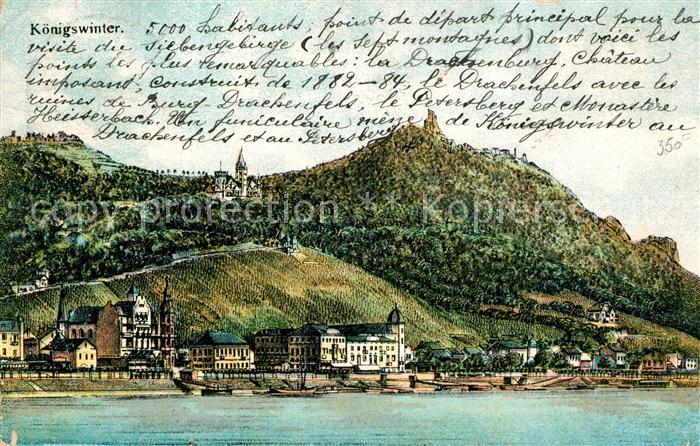 Königswinter. 5000 habitants; point de départ principal pour la
visite du Siebengebirge (les sept montagnes) dont voici les
points les plus remarquables: la Drachenburg, Château
imposant, construit de 1882-84, le Drachenfels avec les
ruines de Burg Drachenfels, le Petersberg et Monastère
Heisterbach. Un funiculaire mène de Königswinter au
Drachenfels et au Petersberg
350
copy protection Copyright Kupferdachl